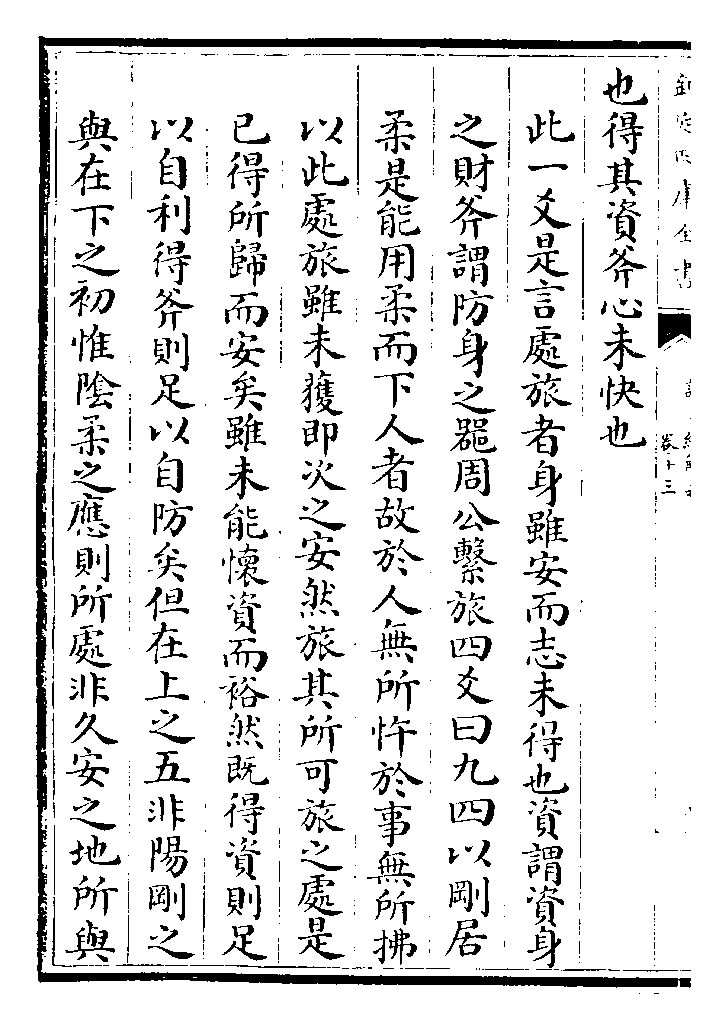 欽定四庫全書
卷十三
也得其資斧心未快也
此一爻是言處旅者身雖安而志未得也資謂資身
之財斧謂防身之器周公繫旅四爻曰九四以剛居
柔是能用柔而下人者故於人無所忤於事無所拂
以此處旅雖未獲即次之安然旅其所可旅之處是
已得所歸而安矣雖未能懷資而裕然既得資則足
以自利得斧則足以自防矣但在上之五非陽剛之
與在下之初惟陰柔之應則所處非久安之地所與